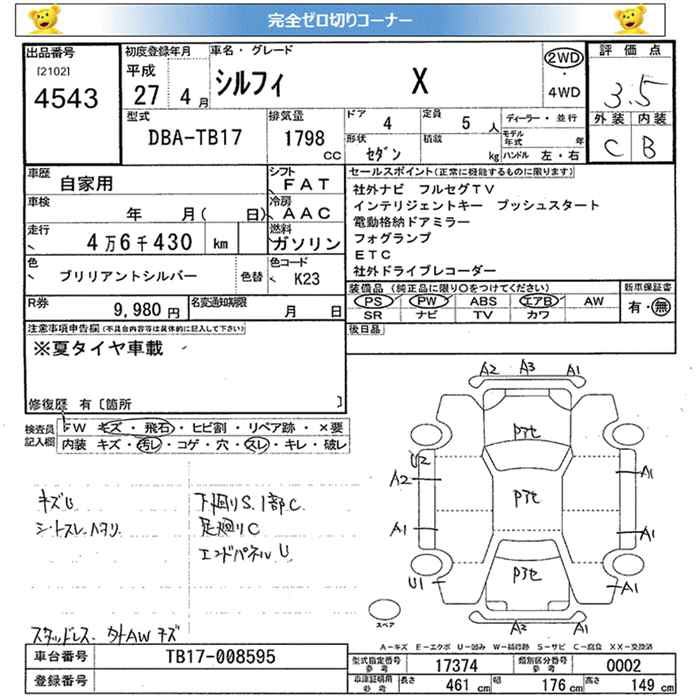 完全ゼロ切りコーナー
出品番号
[2102]
4543
初度登録年月
平成
27 4月
車名・グレード
シルフィ X
2WD
4WD
評価点
3.5
外装 内装
C B
型式
DBA-TB17
排気量
1798
CC
ドア 4
定員 5人
形状 セダン
積載 kg
ディーラー・並行
モデル年式 年
ハンドル 左・右
車歴
自家用
シフト
FAT
車検
年 月( 日)
冷房
AAC
走行
4万6千430 km
燃料
ガソリン
色
ブリリアントシルバー
色替
色コード
K23
R券
9,980円
名変通知期限
月 日
セールスポイント(正常に機能するものに限ります)
社外ナビ フルセグTV
インテリジェントキー プッシュスタート
電動格納ドアミラー
フォグランプ
ETC
社外ドライブレコーダー
装備品 (純正品に限り○をつけてください)
PS PW ABS エアB AW
SR ナビ TV カワ
新車保証書
有・無
後日品
注意事項申告欄(不具合内容等は具体的に記入して下さい)
※夏タイヤ車載
修復歴 有〔箇所 〕
検査員記入欄
FW キズ・飛石・ヒビ割・リペア跡・×要
内装 キズ・汚レ・コゲ・穴・スレ・キレ・破レ
キズU
シートスレ.ハタリ
下廻りS.1部C.
足廻りC
エンドパネルU
スタッドレス. 外AWキズ
A2 A3 A1
U2
A2
A1
A1
A1
U1
A1
A2
スペア
A-キズ E-エクボ U-凹み W-補修跡 S-サビ C-腐食 XX-交換済
車台番号
TB17-008595
登録番号
型式指定番号 参考
17374
類別区分番号 参考
0002
車庫証明用 参考
長さ 461 cm
幅 176 cm
高さ 149 cm